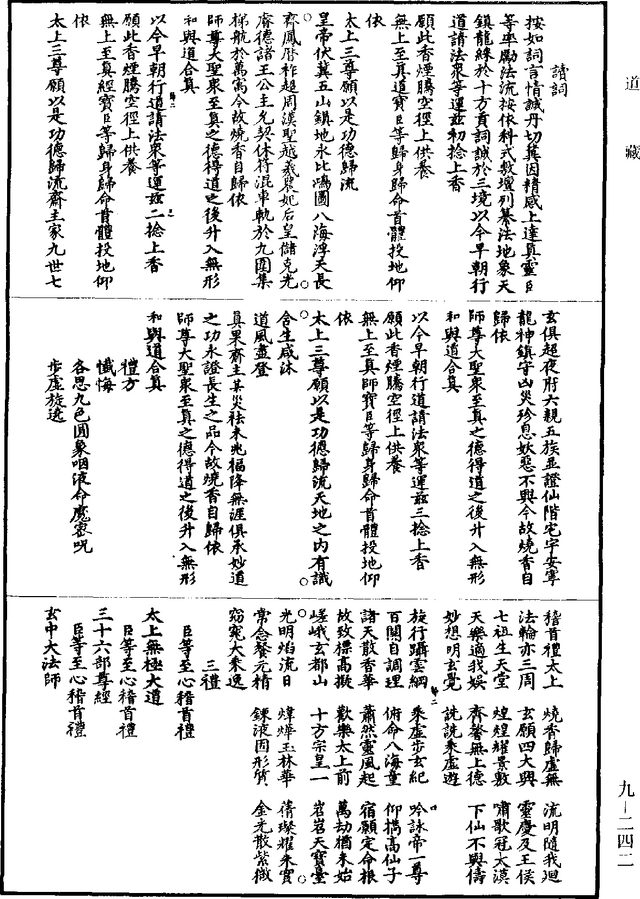 道藏
讀詞
按如詞言情誠丹切冀因精感上達真靈臣
等率勵法流按依科式敷壇列纂法地象天
鎮龍綵於十方貢詞誠於三境以今早朝行
道請法衆等運茲初捻上香
願此香煙騰空徑上供養
無上至真道寶臣等歸身歸命首體投地仰
依
太上三尊願以是功德歸流
皇帝伏冀五山鎮地永比鴻圖八海浮天長
齊鳳曆祚超周漢聖越羲農妃后皇儲克光
睿德諸王公主允契休符混車軌於九圍集
梯航於萬寓今故燒香自歸依
師尊大聖衆至真之德得道之後升入無形
和與道合真
以今早朝行道請法衆等運茲二捻上香
願此香煙騰空徑上供養
無上至真經寶臣等歸身歸命首體投地仰
依
太上三尊願以是功德歸流齋主家九世七
玄俱超夜府六親五族並證仙階宅宇安寧
龍神鎮守凶災殄息妖惡不興今故燒香自
歸依
師尊大聖衆至真之德得道之後升入無形
和與道合真
以今早朝行道請法衆等運茲三捻上香
願此香煙騰空徑上供養
無上至真師寶臣等歸身歸命首體投地仰
依
太上三尊願以是功德歸流天地之内有識
含生咸沐
道風盡登
真果齋主某災祛未兆福降無涯俱承妙道
之功永證長生之品今故燒香自歸依
師尊大聖衆至真之德得道之後升入無形
和與道合真
禮方
懺悔
各思九色圓象咽液命魔密呪
步虛旋遶
稽首禮太上 燒香歸虛無 流明隨我迴
法輪亦三周 玄願四大興 靈慶及王侯
七祖生天堂 煌煌耀景敷 嘯歌冠太漠
天樂適我娛 齊馨無上德 下仙不與儔
妙想明玄覺 詵詵乘虛遊
旋行躡雲綱 乘虛步玄紀 吟詠帝一尊
百關自調理 俯命八海童 仰攜高仙子
諸天散香華 蕭然靈風起 宿願定命根
故致標高擬 歡樂太上前 萬劫猶未始
嵯峨玄都山 十方宗皇一 岧岧天寶臺
光明焰流日 煒燁玉林華 蒨璨耀朱實
常念餐元精 鍊液固形質 金光散紫微
窈窕大乘逸
三禮
臣等至心稽首禮
太上無極大道
臣等至心稽首禮
三十六部尊經
臣等至心稽首禮
玄中大法師
九—二四二